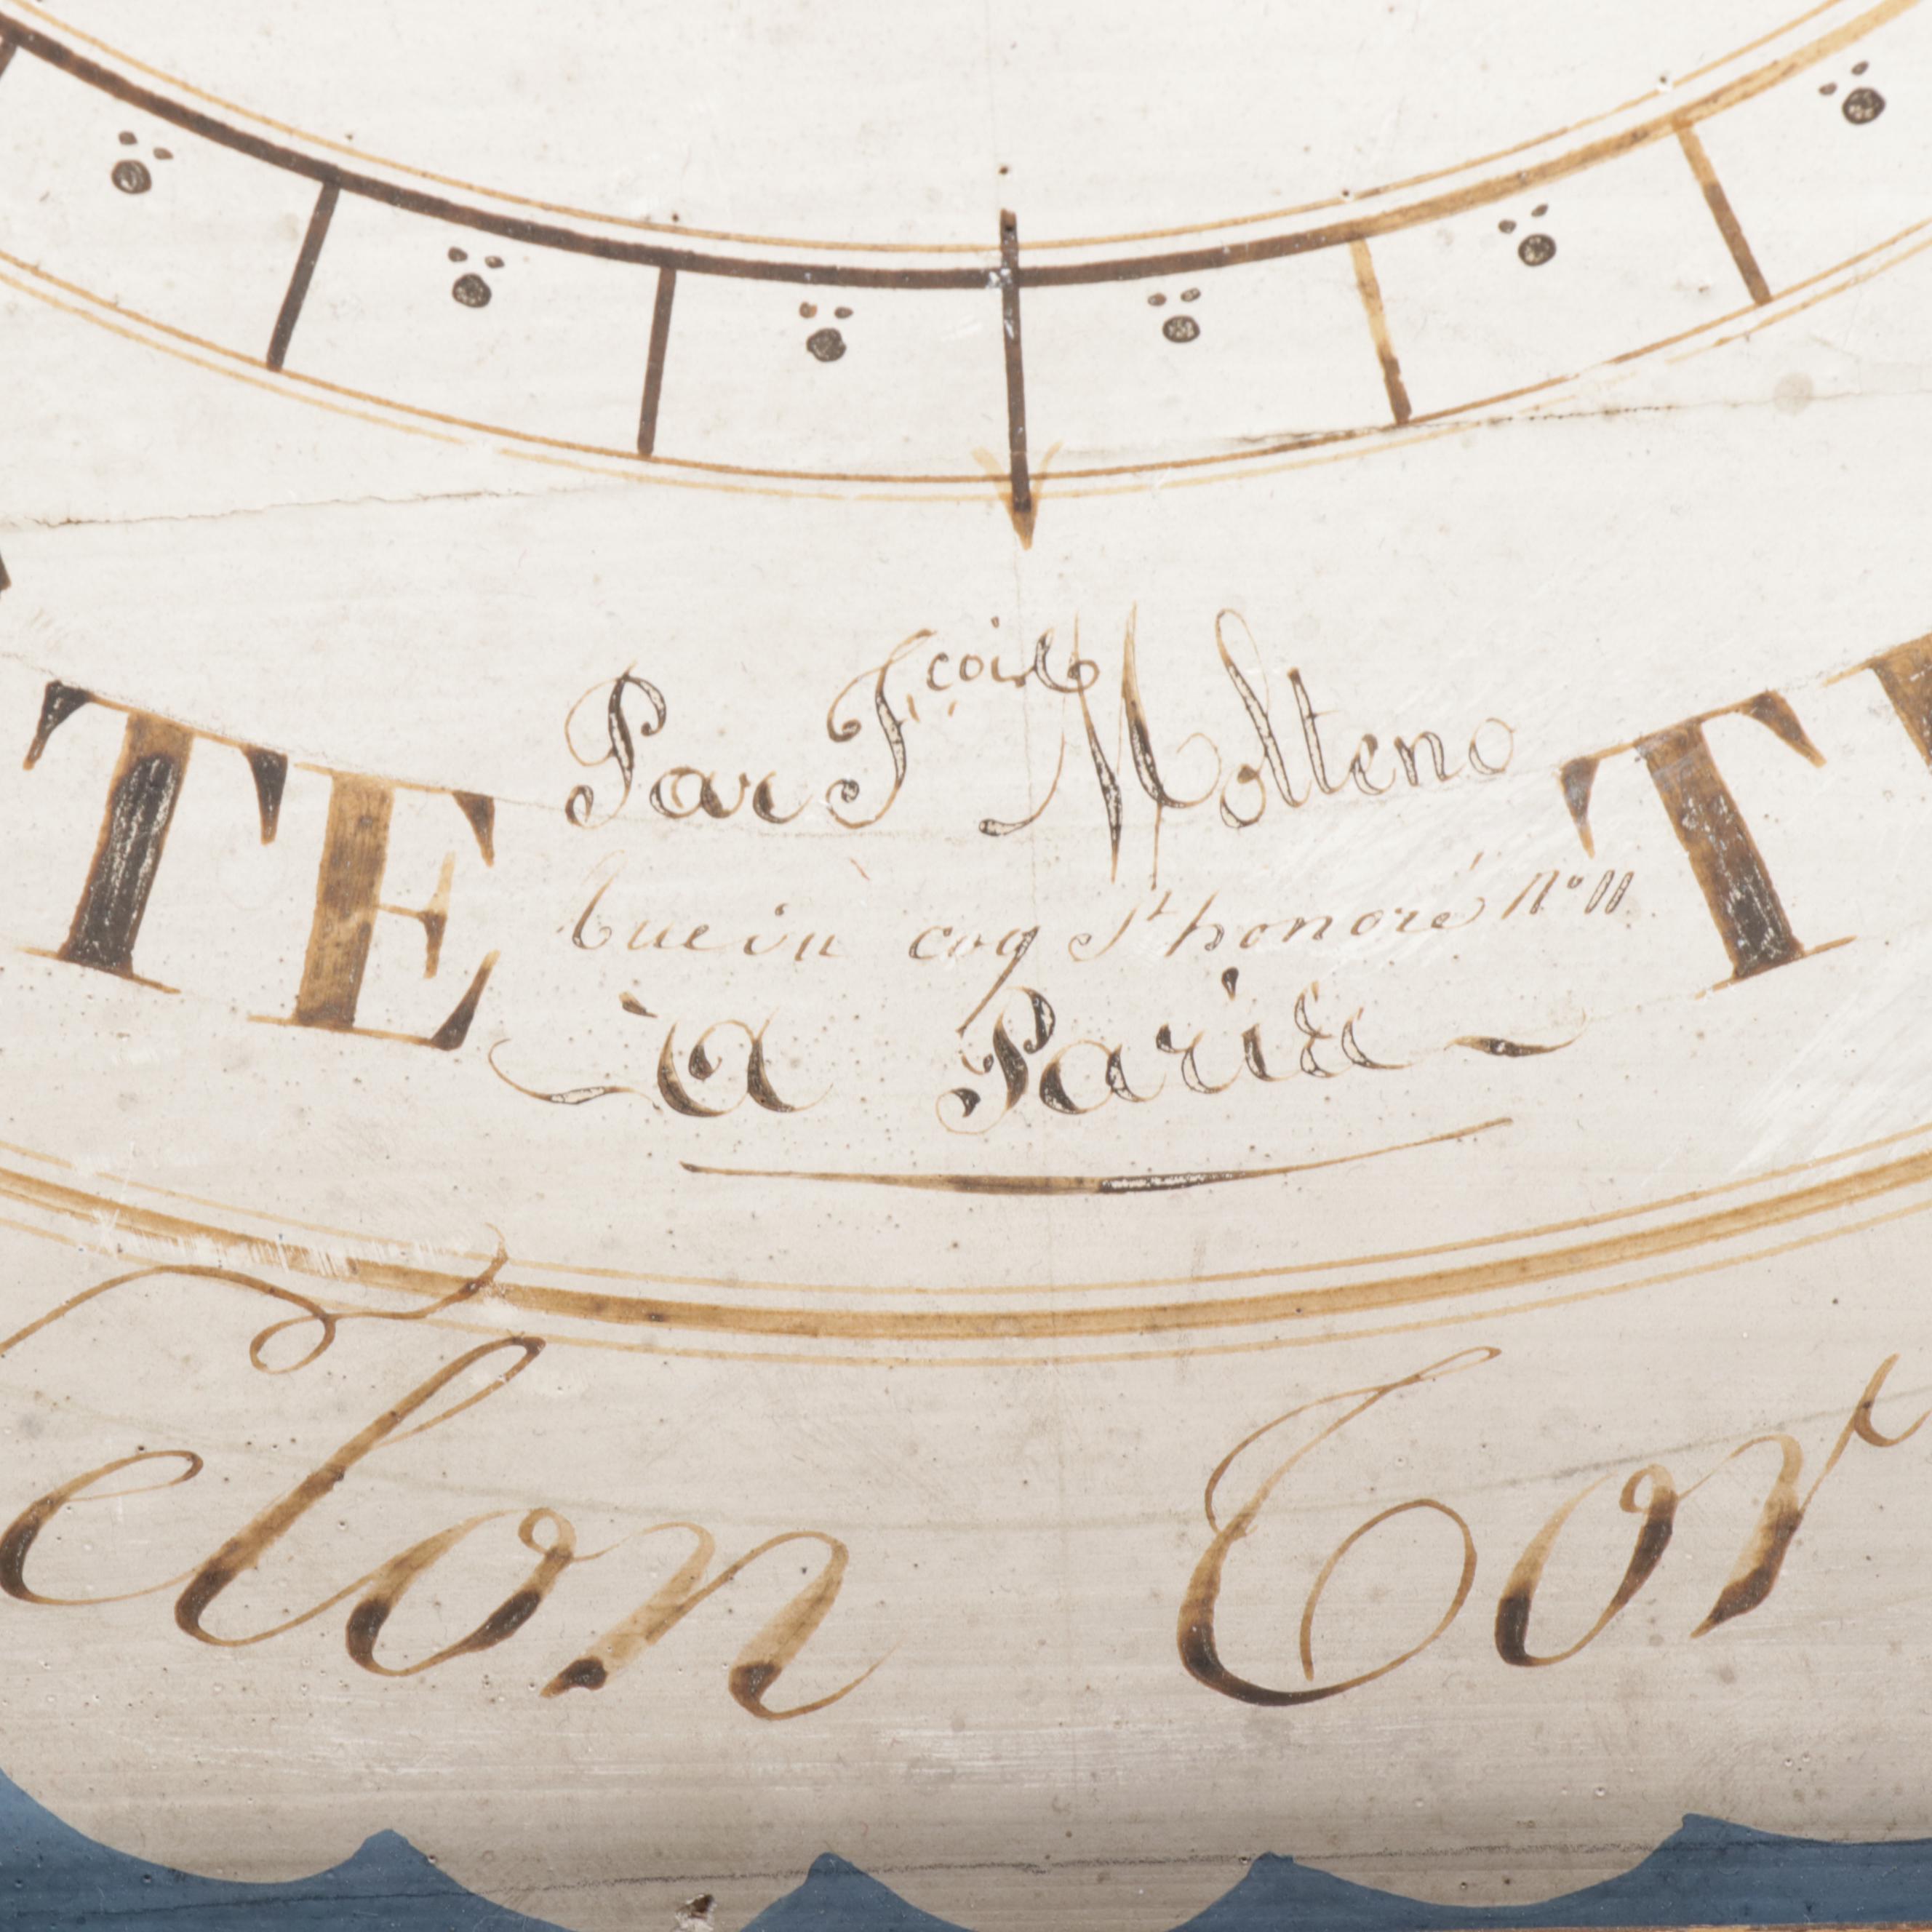 Par F.çois Molteno
TE
T
rue du coq St honoré No 11
à Paris
elon Tor